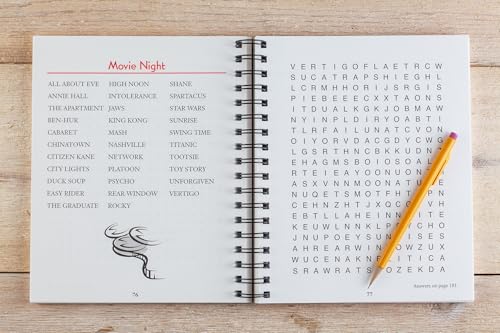 Movie Night
ALL ABOUT EVE HIGH NOON SHANE
ANNIE HALL INTOLERANCE SPARTACUS
THE APARTMENT JAWS STAR WARS
BEN-HUR KING KONG SUNRISE
CABARET MASH SWING TIME
CHINATOWN NASHVILLE TITANIC
CITIZEN KANE NETWORK TOOTSIE
CITY LIGHTS PLATOON TOY STORY
DUCK SOUP PSYCHO UNFORGIVEN
EASY RIDER REAR WINDOW VERTIGO
THE GRADUATE ROCKY
76
V E R T I G O F L A E T R C W
S U C A T R A P S H I E G H L
L C R M H H O R I J S R G I S
P I E B E E E C X X T A O N S
I T D U A L K G K J O B M A W
N Y I N P L D I R Y O A B T I
T L R F A I L U N A T C V O N
O I Y O R V D A C G D Y C W G
L G S R T H N C B K K U D N
E H A G M S B O I O S O A L
R T E I E A Y O O N U O
A S X V N N M O O N A T U E
N U Q E O T F S H T
C E H N Z H T J X Q T
E B T L L A H E I N N I T E
K E U W L N N K L P C H O
J N U P O E Y S U I S E S
A H R E A R W I N O W Z U X
W U C E N A K N E I T I C A
S R A W R A T S O Z E K D A
Answers on page 181
77